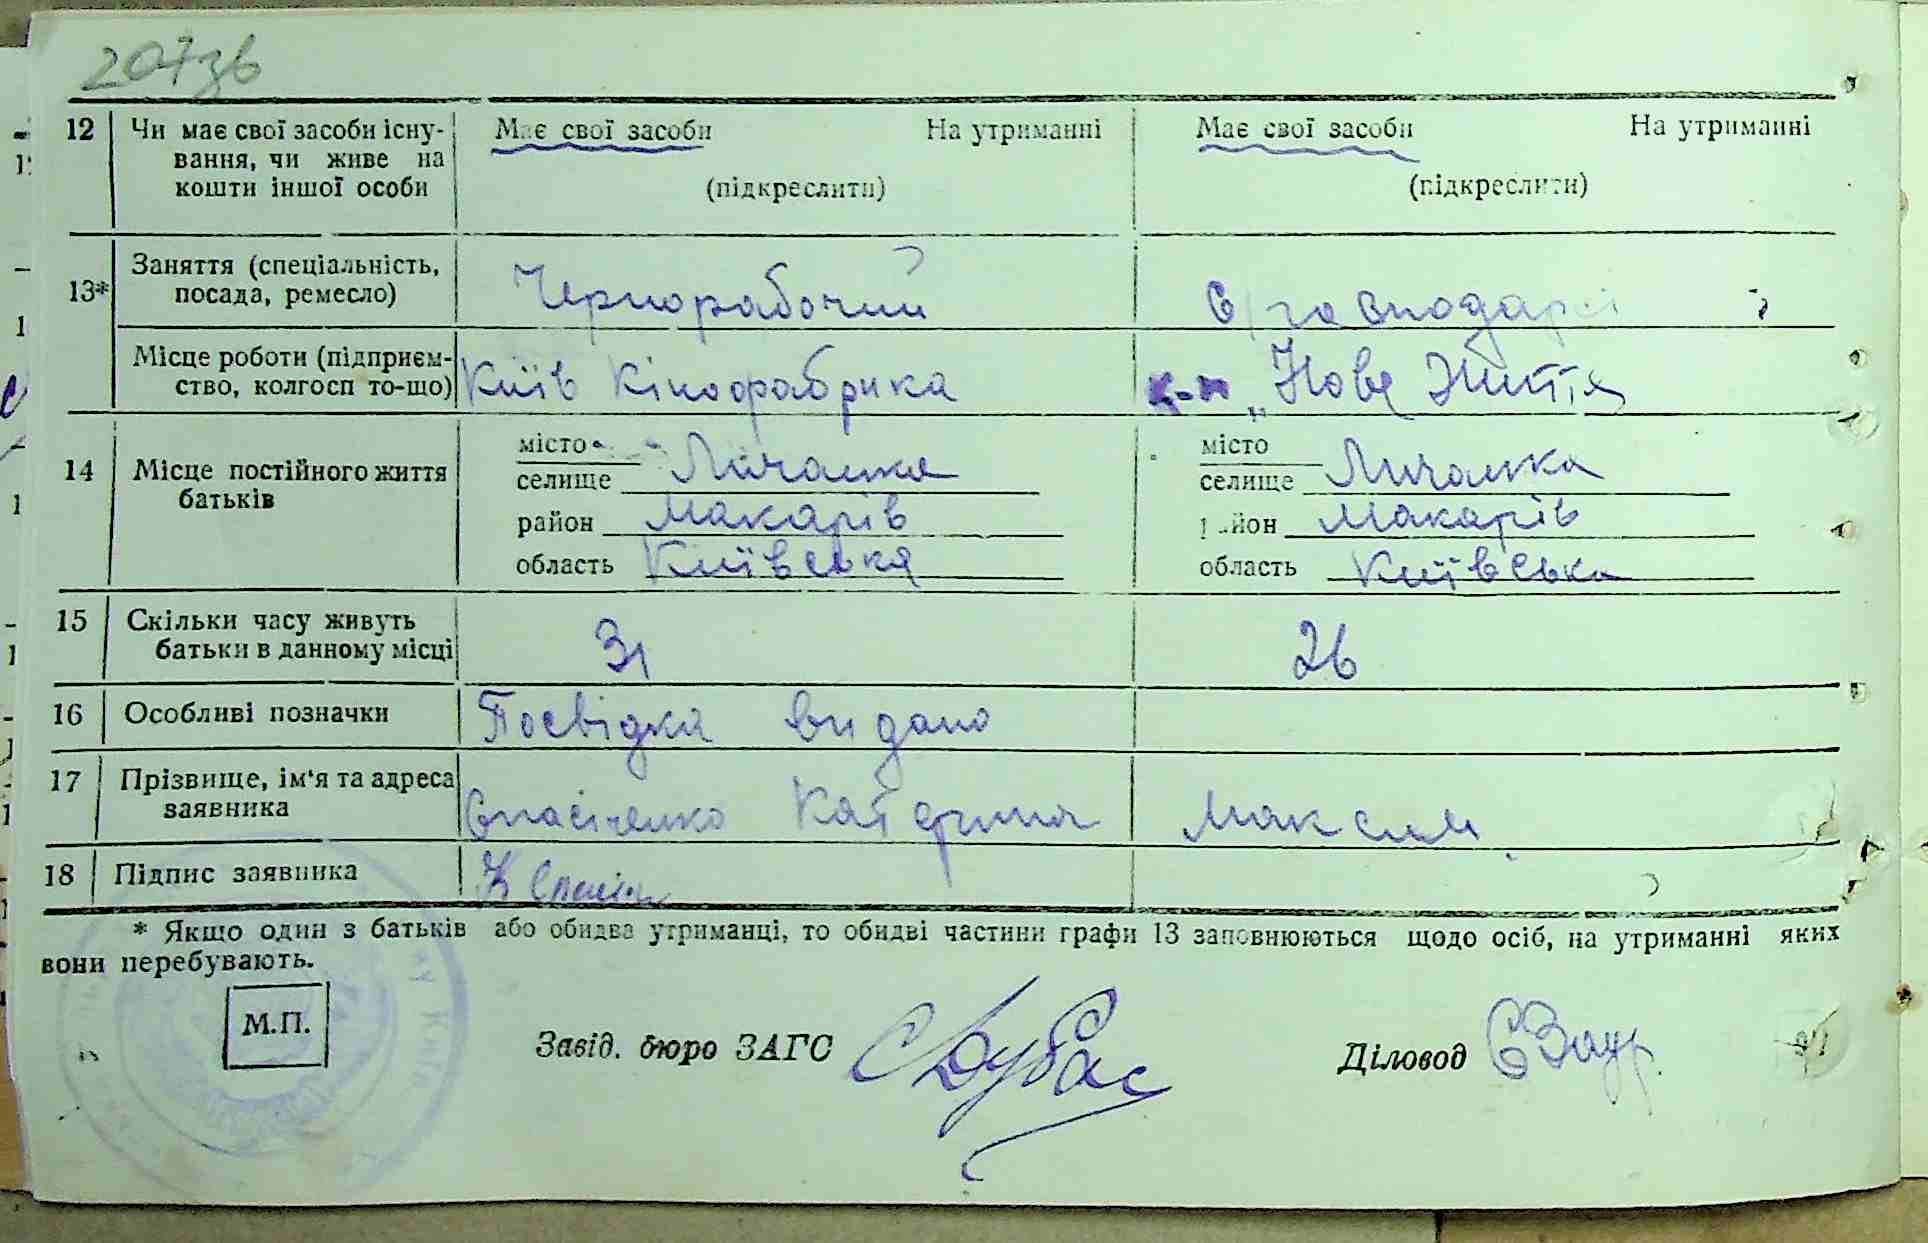 207зв
12 Чи має свої засоби існу- Має свої засоби На утриманні Має свої засоби На утриманні
вання, чи живе на
кошти іншої особи (підкреслити) (підкреслити)
13* Заняття (спеціальність, посада, ремесло) Чернорабочий С/господарст
Місце роботи (підприєм-
ство, колгосп то-що) Київ Кінофабрика к-п „Нове Життя
14 Місце постійного життя батьків
місто місто
селище Личанка селище Личанка
район Макарів район Макарів
область Київська область Київська
15 Скільки часу живуть
батьки в данному місці 31 26
16 Особливі позначки Посвідка видано
17 Прізвище, ім'я та адреса
заявника Спасіченко Катерина Максим
18 Підпис заявника К Спасіч
* Якщо один з батьків або обидва утриманці, то обидві частини графи 13 заповнюються щодо осіб, на утриманні яких
вони перебувають.
М.П. Завід. бюро ЗАГС Дубас Діловод